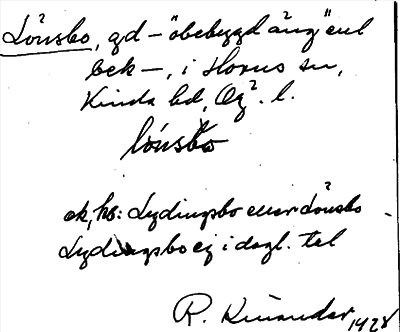 Lönsbo, gd – "obebyggd äng" enl
bek –, i Horns sn,
Kinda hd, Ög. l.
lónsbo
ek, hs: Lydingsbo eller Lönsbo
Lydingsbo ej i dagl. tal
R. Kinander 1928